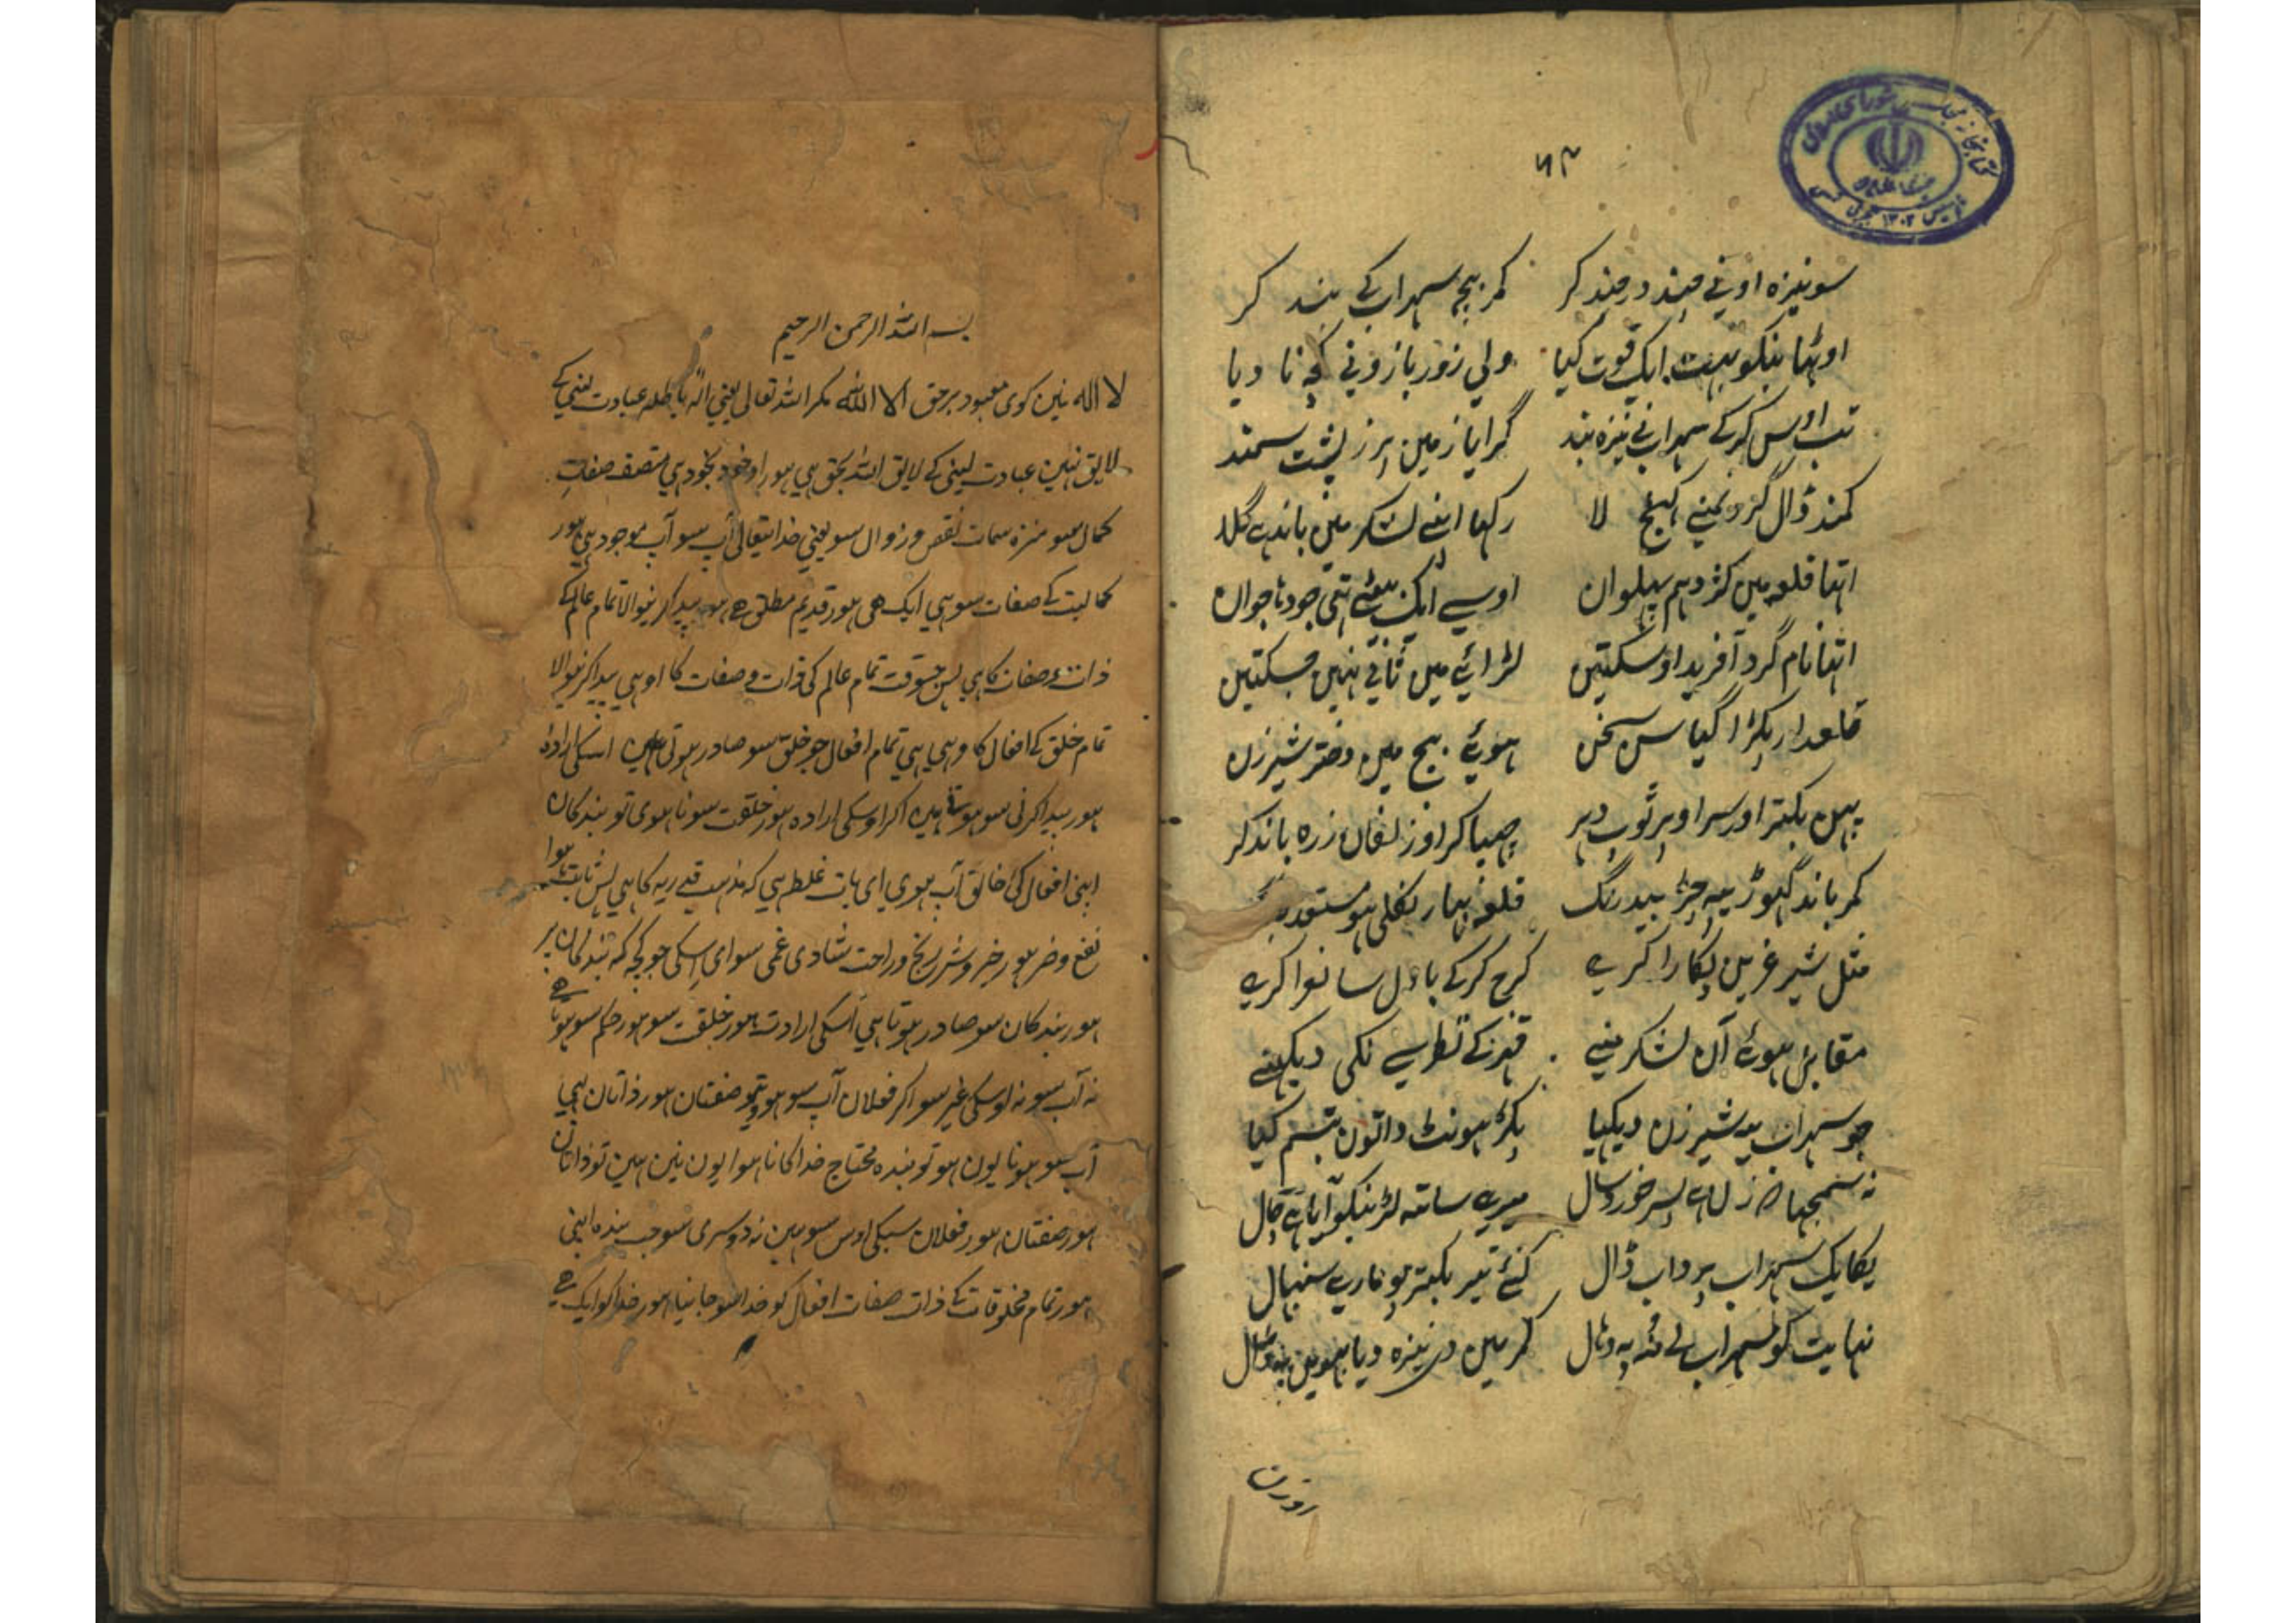 ۶۳
سو نیزہ اونے چند در چند کر کمر بیچ سہراب کے بند کر
اوٹھا بنکو بہت ایک قوت کیا ولی زور بازو نے کچہ نا دیا
تب اوس کرکے سہراب نے نیزہ بند گرایا زمین پر ز پشت سمند
کمند ڈال گردنمنے کہینچ لا رکھا اپنے لشکر مین باندہے گلا
اتھا قلعہ مین کژدہم پہلوان اوسے ایک بیٹی تھی جود تا جوان
اتھا نام گرد آفرید اوسکتین لڑائے مین ثانی نہین جسکتین
قلعدار پکڑا گیا سن سخن ہوئے بیج مین دختر شیرزن
پہن بکتر اور سر اوپر ٹوپ دہر چھپا کر او زلفان زرہ باند کر
کمر باند گہوڑے پہ چڑ بیدرنگ قلعہ بہار نکلی ہو مستعد
مثل شیر غرین پکارا کرے کرج کرکے بادل سا نوا کرے
مقابل ہوئے آن لشکر منے قہر کے نظر سے نکی دیکہنے
جو سہراب یہ شیر زن دیکہیا پکڑ ہونٹ داتون تبسم کیا
نہ سمجہا زن اے پسر خورد سال میرے ساتہ لڑ نیکو آیا ہے چال
یکایک سہراب پر داب ڈال کئے تیر بکتر پو مارے سنبہال
نہایت کو سہراب لے منہ پہ ڈہال کمر مین دی نیزہ دیا بہوین پہ ڈال
بسم اللہ الرحمن الرحیم
لا الہ نین کوی معبود برحق الا اللہ مکر اللہ تعالی یعنی الہ باطلہ عبادت لینی کے
لایق نہین عبادت لینی کے لایق اللہ بحق ہی ہور او خود بخود ہی متصف صفات
کمال سو منزہ سمات نقص و زوال سو یعنی خدایتعالی آپ سو آپ موجود ہی ہور
کمالیت کے صفات سو ہی ایک ہی ہور قدیم مطلق ہے ہور پیدا کرنیوالا تمام عالم کے
ذات و صفات کا ہی پس جسوقت تمام عالم کی ذات و صفات کا او ہی پیدا کرنیوالا
تمام خلق کے افعال کا وہی ہی تمام افعال جو خلق سو صادر ہوتی ہین اسکی ارادہ
ہور پیدا کرنی سو ہوتے ہین اکر اوسکی ارادہ ہور خلقت سو نا ہوی تو بندکان
اپنی افعال کی خالق آپ ہوی ای بات غلط ہی کہ مذہب قدریہ کا ہی پس ثابت ہوا
نفع و ضر ہور خیر و شر رنج و راحت شادی غمی سوای اسکی جو کچہ کہ بندکان پر
ہور بندکان سو صادر ہوتا ہی اسکی ارادت ہور خلقت سو ہور حکم سو ہوتا ہے
نہ آپ سو نہ اوسکی غیر سو اکر فعلان آپ سو ہوی تو صفتان ہور ذاتان بہی
آپ سو ہونا یون ہو تو بندہ محتاج خدا کا نا ہوا یون نین ہین تو ذاتان
ہور صفتان ہور فعلان سبکی اوس سو ہین نہ دوسری سو جب بندہ اپنی
ہور تمام مخلوقات کے ذات صفات افعال کو خدا سو جانیا ہور خدا کو ایک ہے